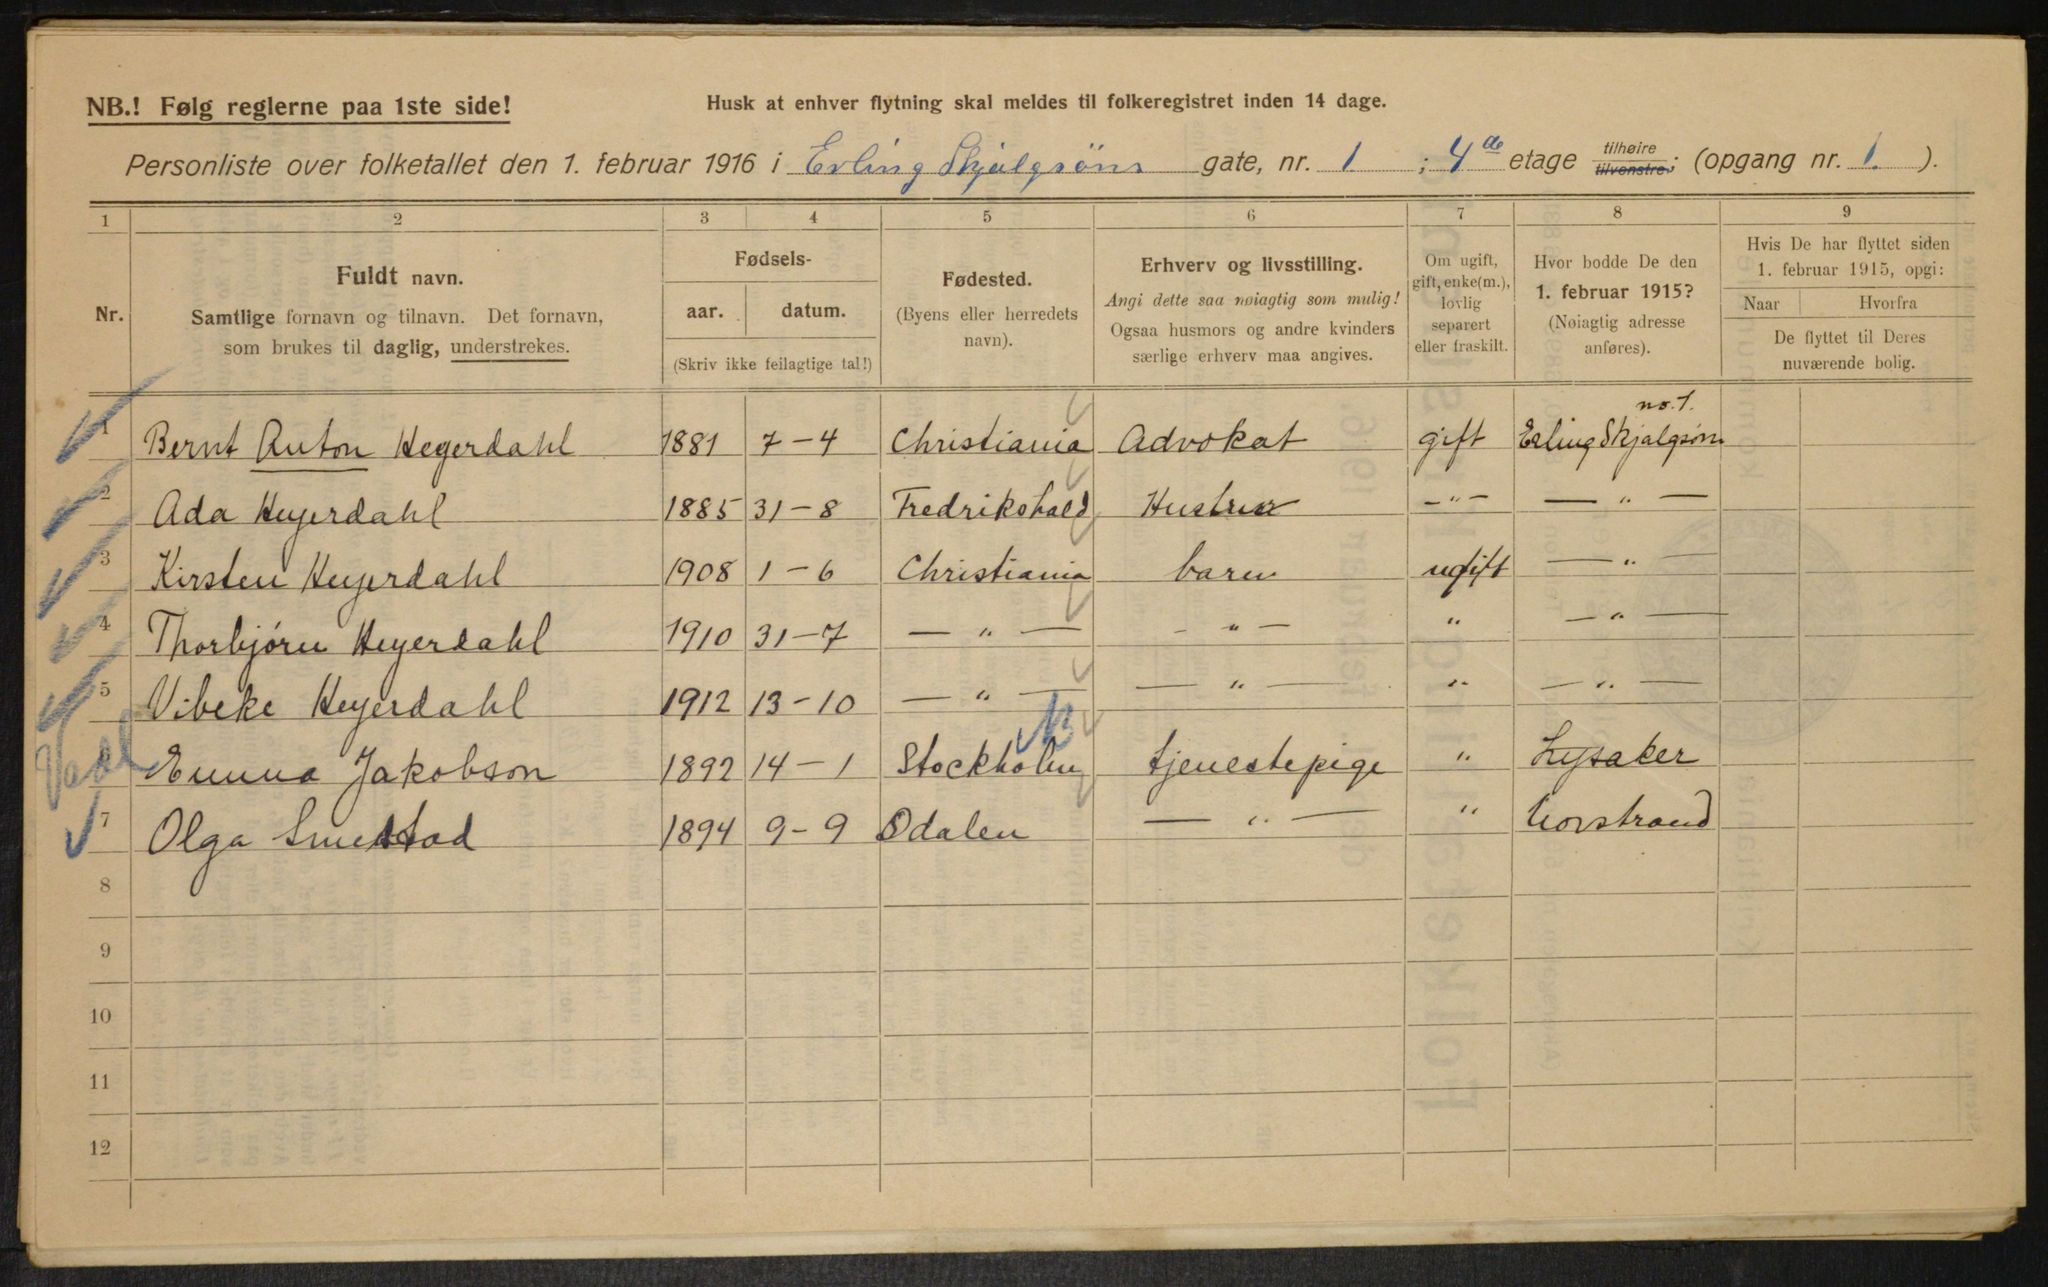 NB.! Følg reglerne paa 1ste side!
Husk at enhver flytning skal meldes til folkeregistret inden 14 dage.
Personliste over folketallet den 1. februar 1916 i Erling Skjalgsøns gate, nr. 1 ; 4de etage tilhøire tilvenstre; (opgang nr. 1. ).
1 2 3 4 5 6 7 8 9
Nr.
Fuldt navn.
Samtlige fornavn og tilnavn. Det fornavn,
som brukes til daglig, understrekes.
Fødsels-
aar. datum.
(Skriv ikke feilagtige tal!)
Fødested.
(Byens eller herredets
navn).
Erhverv og livsstilling.
Angi dette saa nøiagtig som mulig!
Ogsaa husmors og andre kvinders
særlige erhverv maa angives.
Om ugift,
gift, enke(m.),
lovlig
separert
eller fraskilt.
Hvor bodde De den
1. februar 1915?
(Nøiagtig adresse
anføres).
Hvis De har flyttet siden
1. februar 1915, opgi:
Naar Hvorfra
De flyttet til Deres
nuværende bolig.
1 Bernt Anton Heyerdahl 1881 7-4 Christiania Advokat gift Erling Skjalgsøn no. 1.
2 Ada Heyerdahl 1885 31-8 Fredrikshald Hustru -"- - " -
3 Kirsten Heyerdahl 1908 1-6 Christiania barn ugift - " -
4 Thorbjørn Heyerdahl 1910 31-7 - " - - " - " - " -
5 Vibeke Heyerdahl 1912 13-10 - " - - " - " - " -
6 Emma Jakobson 1892 14-1 Stockholm tjenestepige " Lysaker
7 Olga Smedstad 1894 9-9 Odalen - " - " Norstrand
8
9
10
11
12